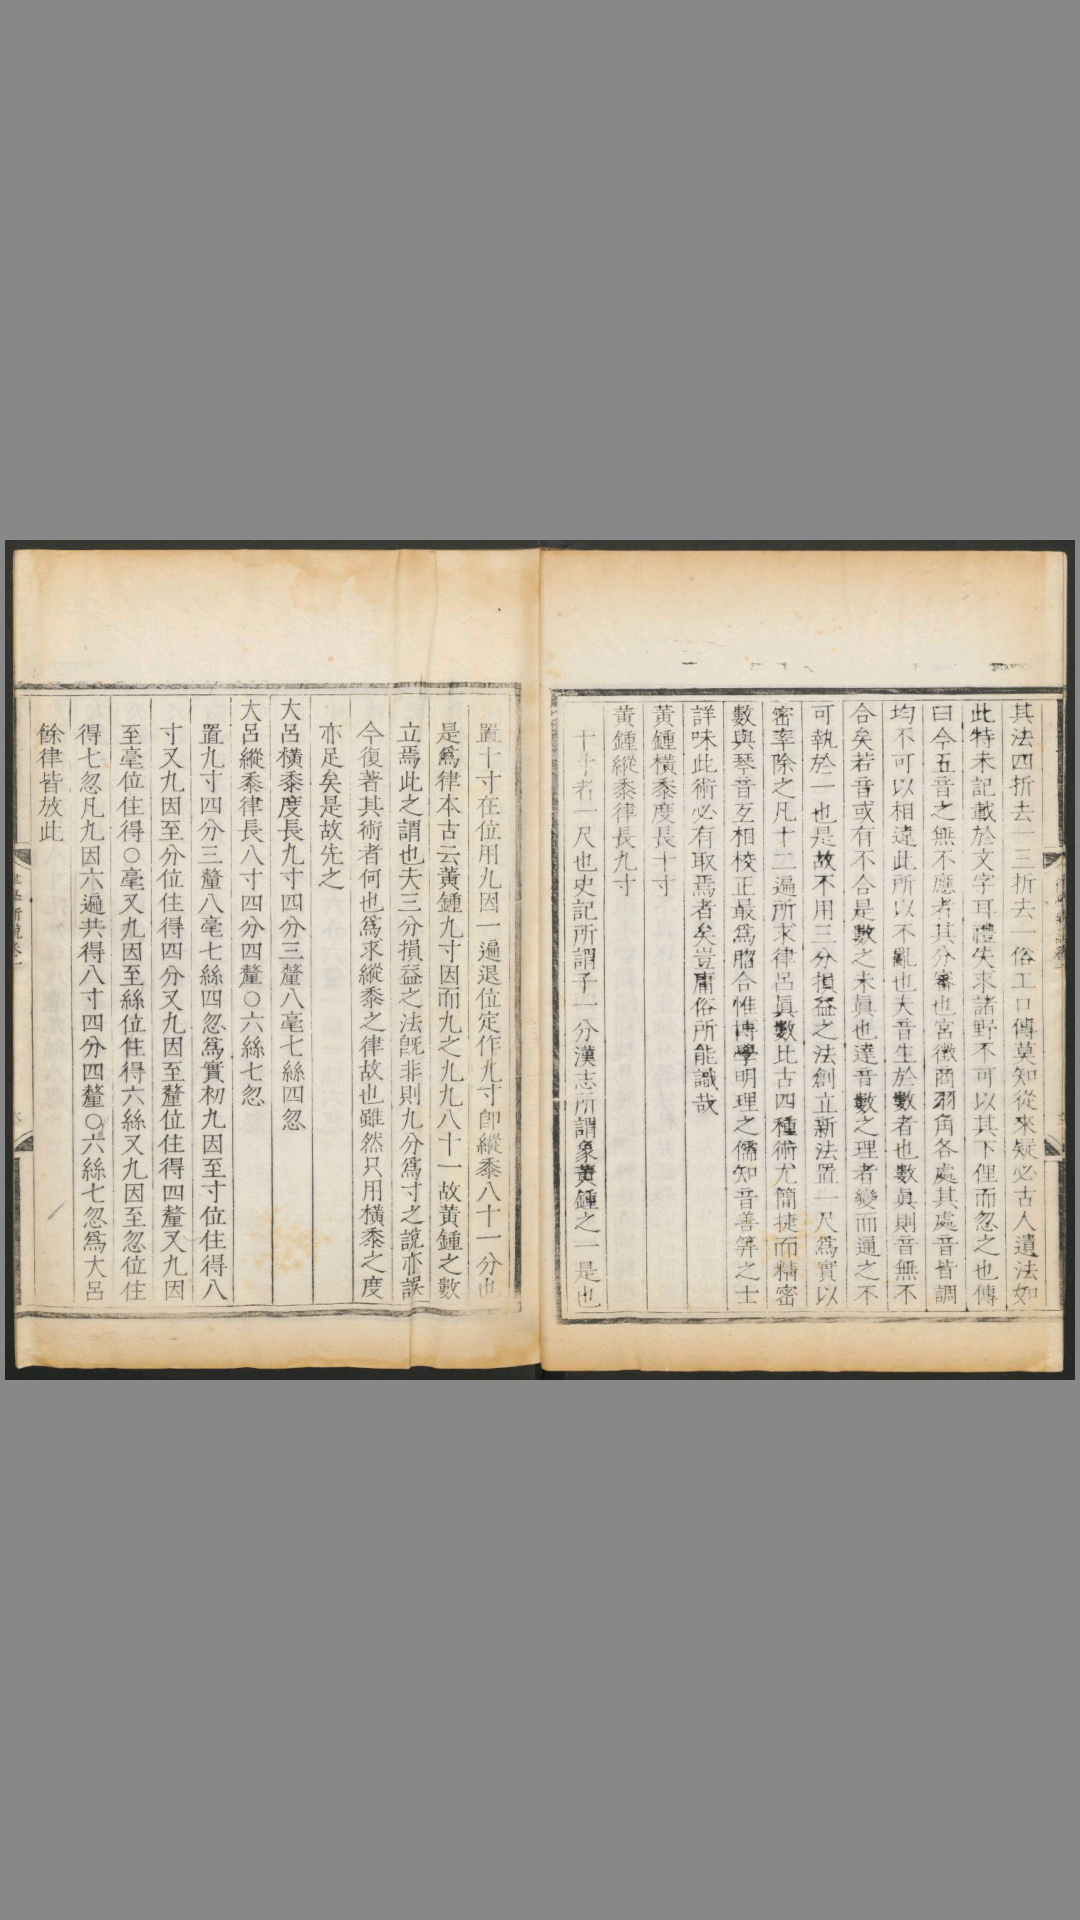 其法四折去一三折去一俗工口傳莫知從來疑必古人遺法如
此特未記載於文字耳禮失求諸野不可以其下俚而忽之也傳
曰今五音之無不應者其分審也宮徵商羽角各處其處音皆調
均不可以相違此所以不亂也夫音生於數者也數真則音無不
合矣若音或有不合是數之未真也達音數之理者變而通之不
可執於一也是故不用三分損益之法創立新法置一尺為實以
密率除之凡十二遍所求律呂真數比古四種術尤簡捷而精密
數與琴音互相校正最為脗合惟博學明理之儒知音善筭之士
詳味此術必有取焉者矣豈庸俗所能識哉
黃鍾橫黍度長十寸
黃鍾縱黍律長九寸
十寸者一尺也史記所謂子一分漢志所謂象黃鍾之一是也
置十寸在位用九因一遍退位定作九寸卽縱黍八十一分也
是爲律本古云黃鍾九寸因而九之九九八十一故黃鍾之數
立焉此之謂也夫三分損益之法旣非則九分爲寸之說亦誤
今復著其術者何也爲求縱黍之律故也雖然只用橫黍之度
亦足矣是故先之
大呂橫黍度長九寸四分三釐八毫七絲四忽
大呂縱黍律長八寸四分四釐○六絲七忽
置九寸四分三釐八毫七絲四忽爲實初九因至寸位住得八
寸又九因至分位住得四分又九因至釐位住得四釐又九因
至毫位住得○毫又九因至絲位住得六絲又九因至忽位住
得七忽凡九因六遍共得八寸四分四釐○六絲七忽爲大呂
餘律皆放此